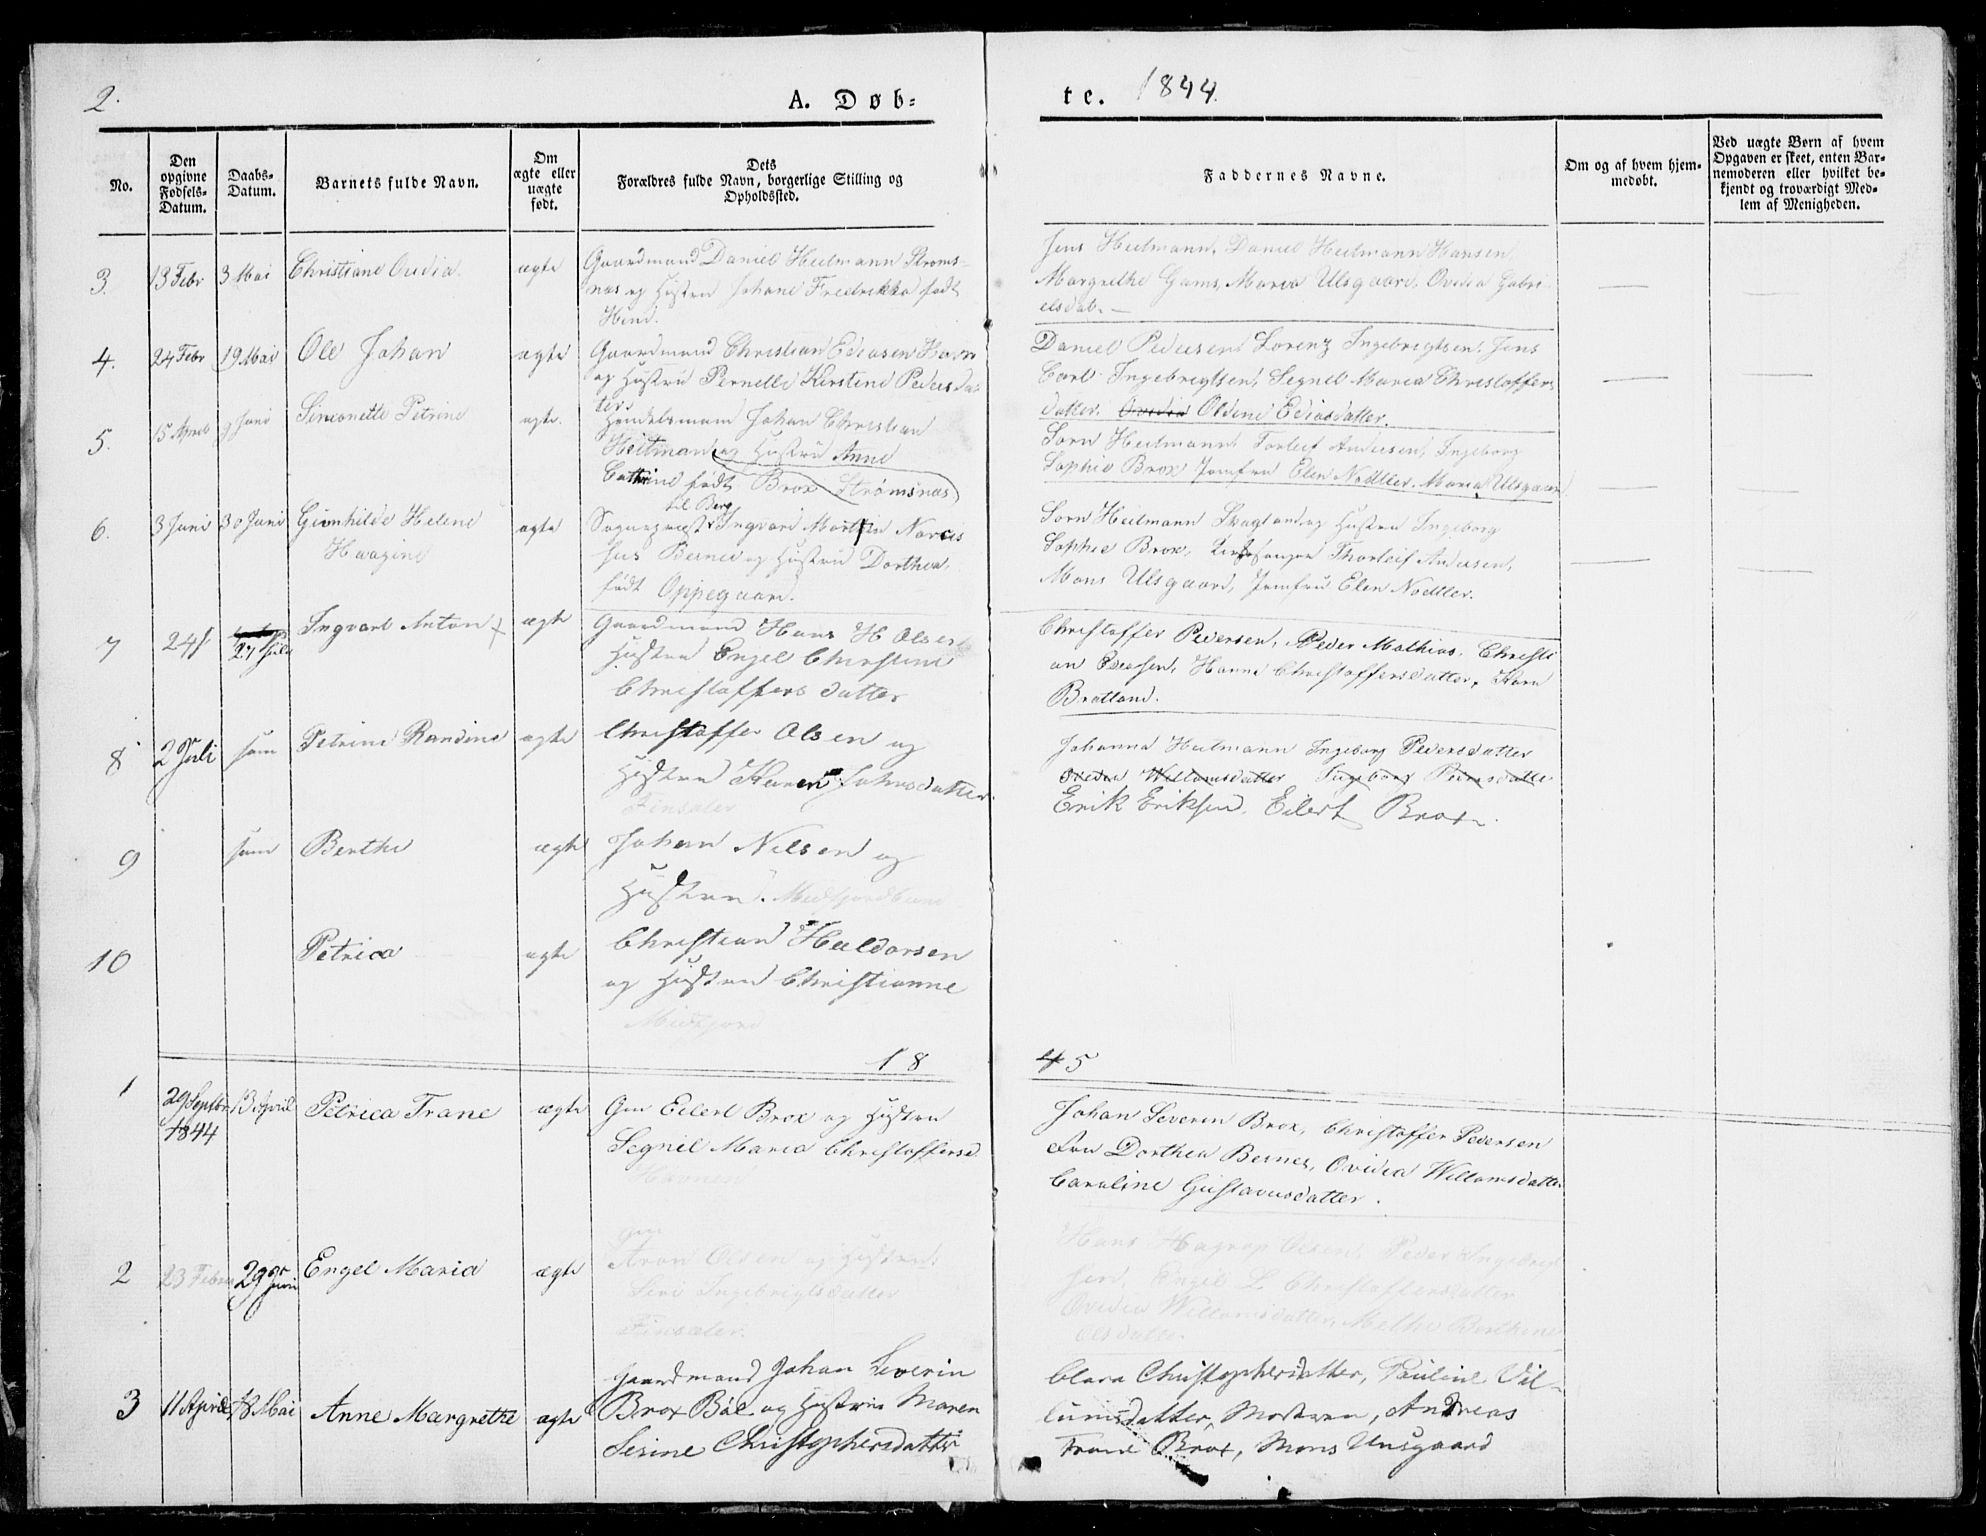 2.
A. Døb-
te. 1844.
No.
Den opgivne Fødsels-Datum.
Daabs-Datum.
Barnets fulde Navn.
Om ægte eller uægte født.
Dets Forældres fulde Navn, borgerlige Stilling og Opholdssted.
Faddernes Navne.
Om og af hvem hjemmedøbt.
Ved uægte Børn af hvem Opgaven er skeet, enten Barnemoderen eller hvilket bekjendt og troværdigt Medlem af Menigheden.
3. 13 Febr 3 Mai Christiane Ovidia ægte Gaardmand Daniel Heitmann Strøms-
næs og Hustru Johane Fredrikka født
Hind.
Jens Heitmann, Daniel Heitmann Hansen,
Margrethe Gams, Maria Ulsgaard, Ovidia Gabri
elsdat.
4. 24 Febr 19 Mai Ole Johan ægte Gaardmand Christian Ediasen Havn
og Hustru Pernelle Kirstine Pedersda
ter.
Daniel Pedersen, Lorenz Ingebrigtsen, Jens
Carl Ingebrigtsen, Segnel Maria Christoffers
datter. Ovidia Oldine Ediasdatter.
5. 15 April 9 Juni Simonette Petrine ægte. Handelsmand Johan Christian
Heitman og Hustru Anne
Cathrine født Brox Strømsnæs
Sørn Heitmann, Torleif Andersen, Ingeborg
Sophie Brox Jomfru Elen Nodtler. Maria Ulsgaard
6. 3 Juni 30 Juni Gunhilde Helene
Havagine
ægte
til Berg
Sognepræst Ingvard Martin Narcis
sus Berner og Hustru Dorthea,
født Oppegaard.
Sørn Heitmann Skagland og Hustru Ingeborg
Sophie Brox, Kirkesanger Thorleif Andersen,
Mons Ulsgaard, Jomfru Elen Nodtler.
7 24 27 Juli Ingvart Anton ægte Gaardmand Hans H Olsen
Hustru Engel Christine
Christoffersdatter
Christoffer Pedersen, Peder Mathias, Christi
an Ediasen, Hanna Christoffersdatter, Karn
Bratland.
8 2 Juli sam Petrine Randine ægte Christoffer Olsen og
Hustru Karen Johnsdatter.
Finsæter
Johanna Heitmann Ingeborg Pedersdatter
Ovidia Willumsdatter Ingeborg
Erik Eriksen, Eilert Brox.
9 sam Berthe ægte Johan Nilsen og
Hustru. Medfjordbund
10 Petrica ægte Christian Haldorsen
og Hustru Christianne
Medfjord
18
45
1 29 Septbr
1844
13 April Petrica Trane ægte Gm Eilert Brox og Hustru
Segnel Maria Christoffersd.
Havnen
Johan Severin Brox, Christoffer Pedersen
Fru Dorthea Berner, Ovidia Willumsdatter
Caroline Gustavusdatter.
2 23 Febru 29de Juni Engel Maria ægte Gm
Aron Olsen og Hustru
Sine Ingebrigtsdatter
Finsæter.
Hans Hagrup Olsen, Peder Ingebrigt
sen, Engel L. Christoffersdatter
Ovidia Willumsdatter, Methe Berthine
Olsdatter
3 11 April 18 Mai Anne Margrethe ægte Gaardmand Johan Severin
Brox Bøl og Hustru Maren
Serine Christophersdatter
Clara Christophersdatter, Pauline Vil-
lumsdatter, Morten, Andreas
Trane Brox, Mons Unsgaard